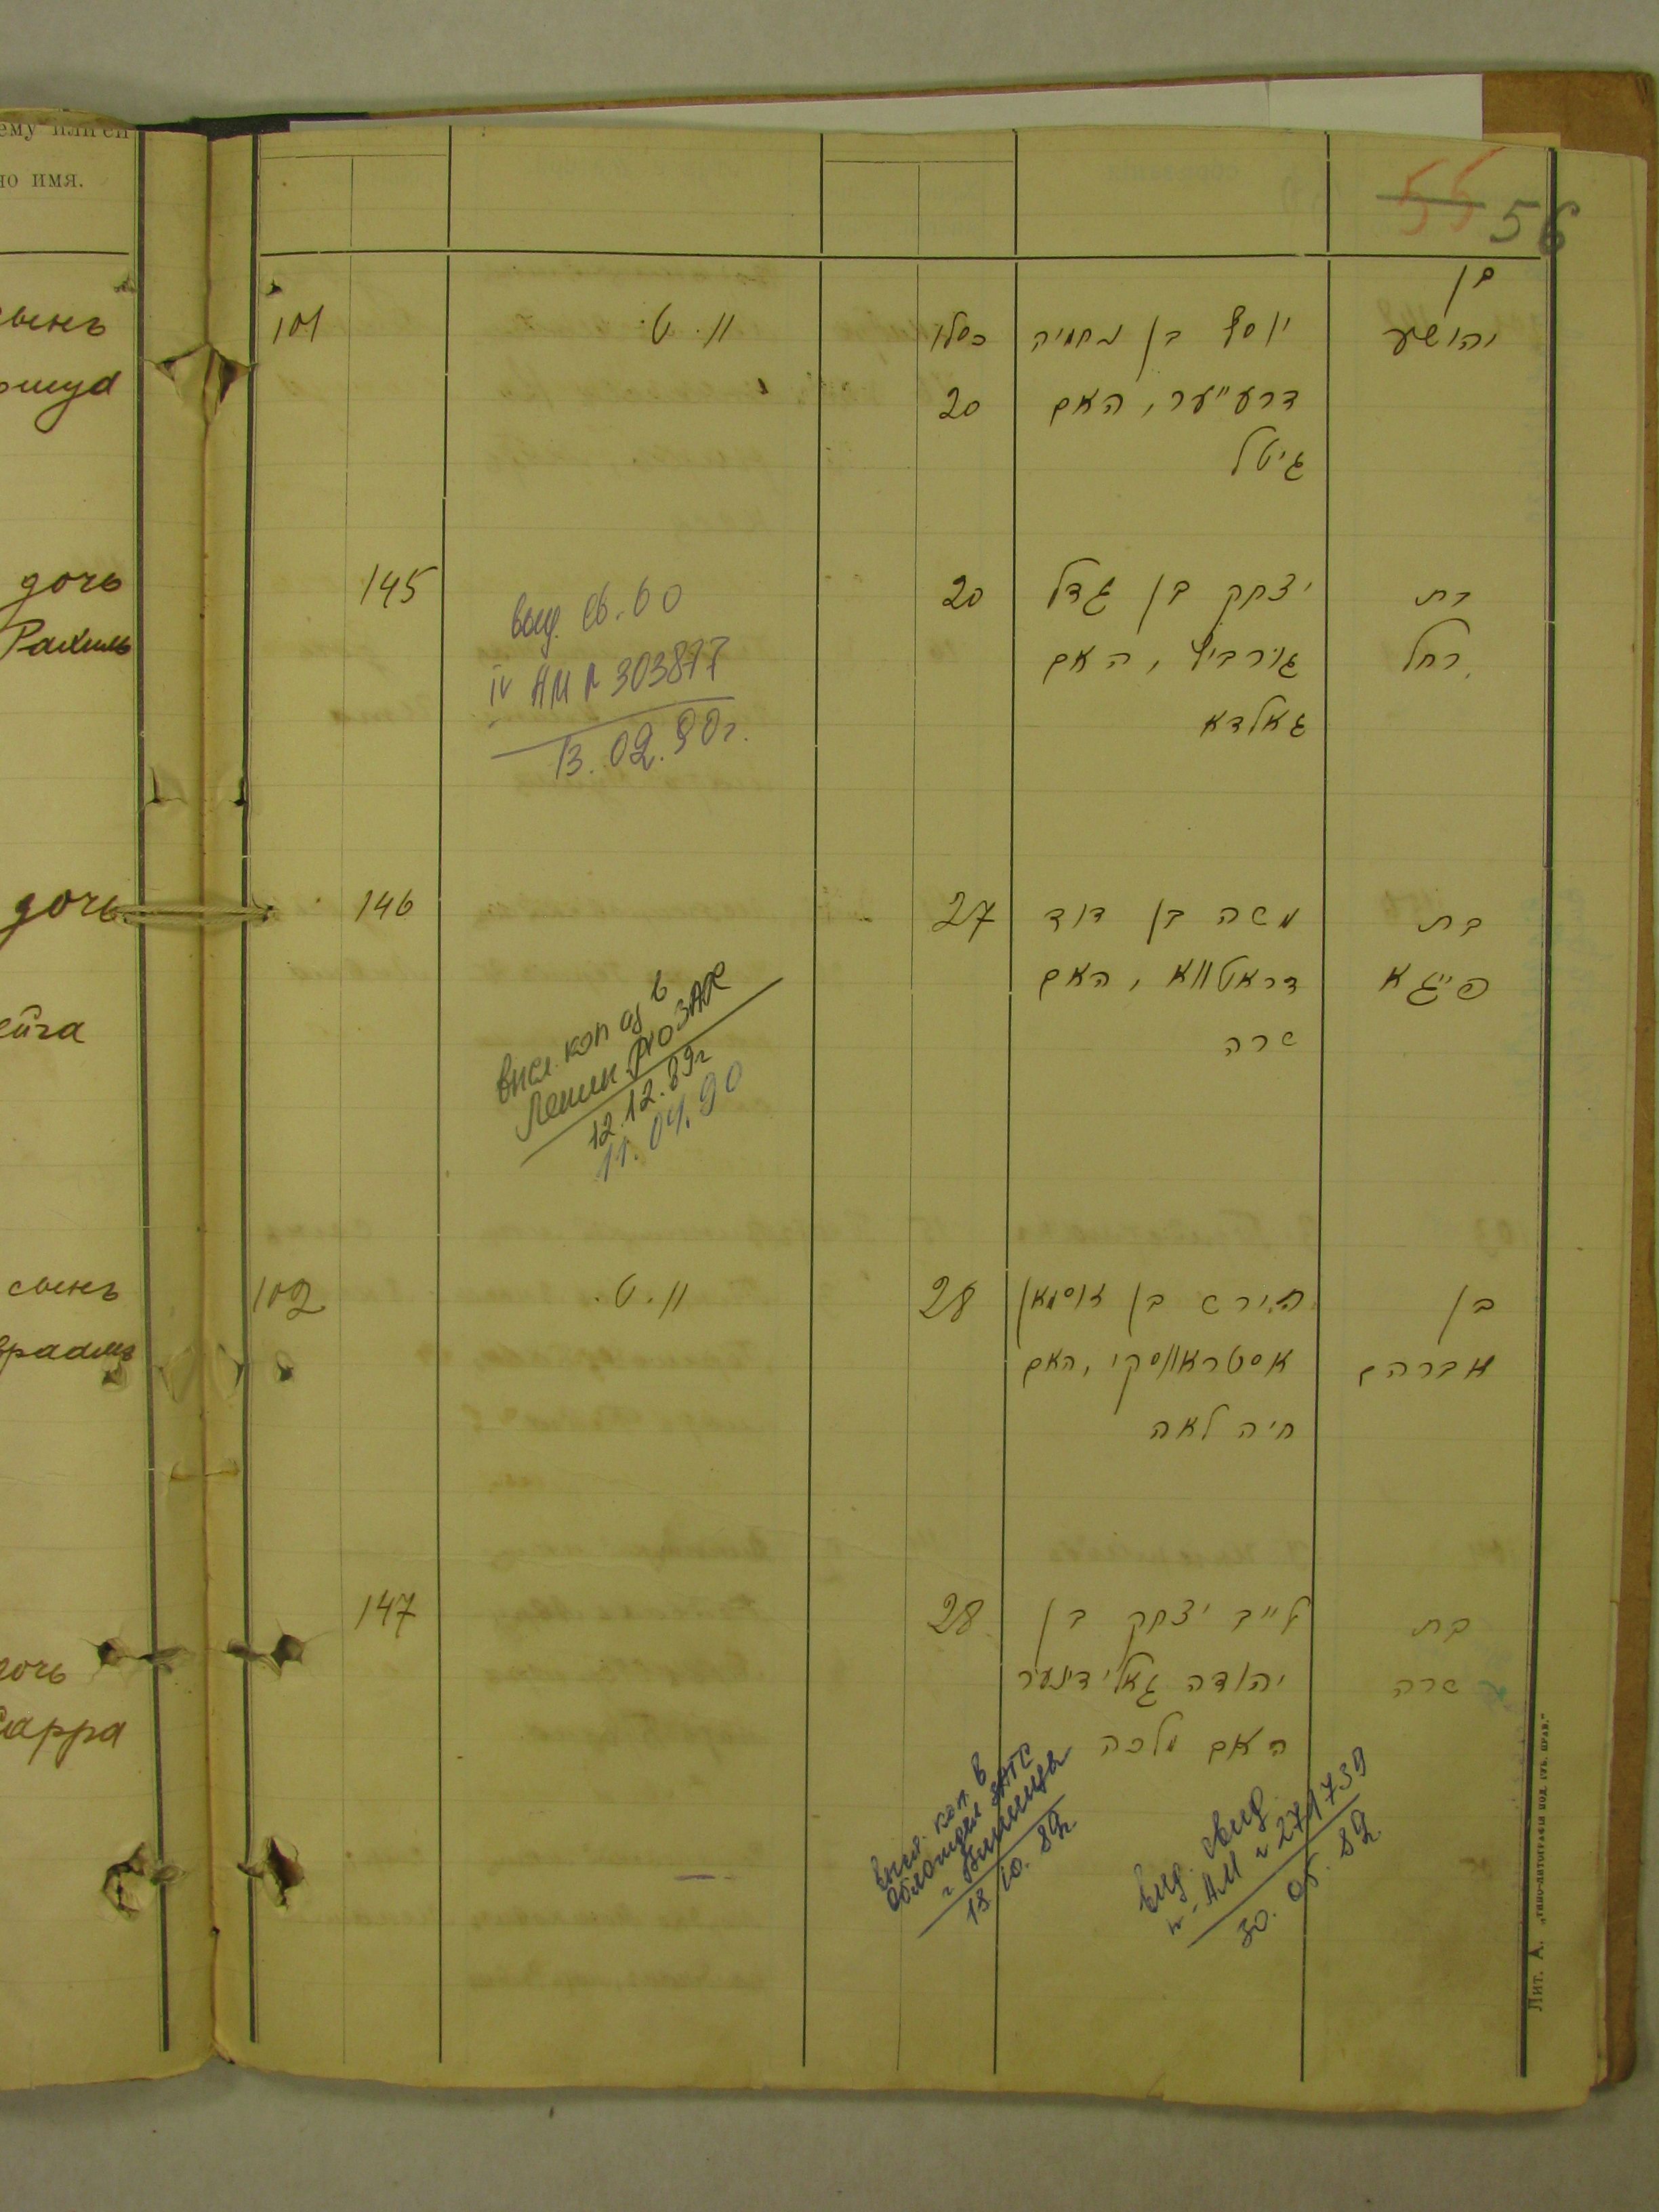 но имя.
55 56
сынъ
101
װ. ט.
כסלו
יוסף בן נחמיה
בן
יהושע
20
דרע״ער, האם
גיטל
дочь
Рахиль
145
20
יצחק בן גדל
גורביץ, האם
גאלדא
בת
רחל
выд. св. 60
IV АМ № 303877
13.02.90г.
дочь
146
27
משה בן דוד
דראטווא, האם
שרה
בת
פייגא
высл. коп из в
Ленин. РЮ ЗАГС
12.12.89г
11.04.90
сынъ
102
װ. ט.
28
הירש בן זוסמאן
אסטראווסקי, האם
חיה לאה
בן
אברהם
147
28
לייב יצחק בן
יהודה גאלידינער
האם מלכה
בת
שרה
дочь
Сарра
высл. коп. в
Облотдел ЗАГС
г. Винницы
18.10.89г.
выд. свид.
АМ № 271739
30.05.89г.
Лит. А. „типо-литографія под. губ. прав."